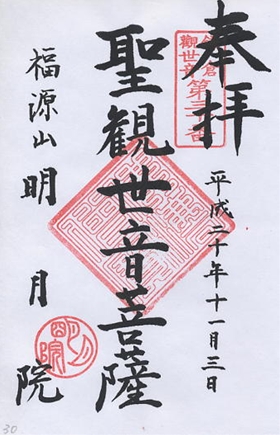 奉拝
鎌倉
觀世音
第三十番
平成二十年十一月三日
聖観世音菩薩
福源山明月院
明月院
30